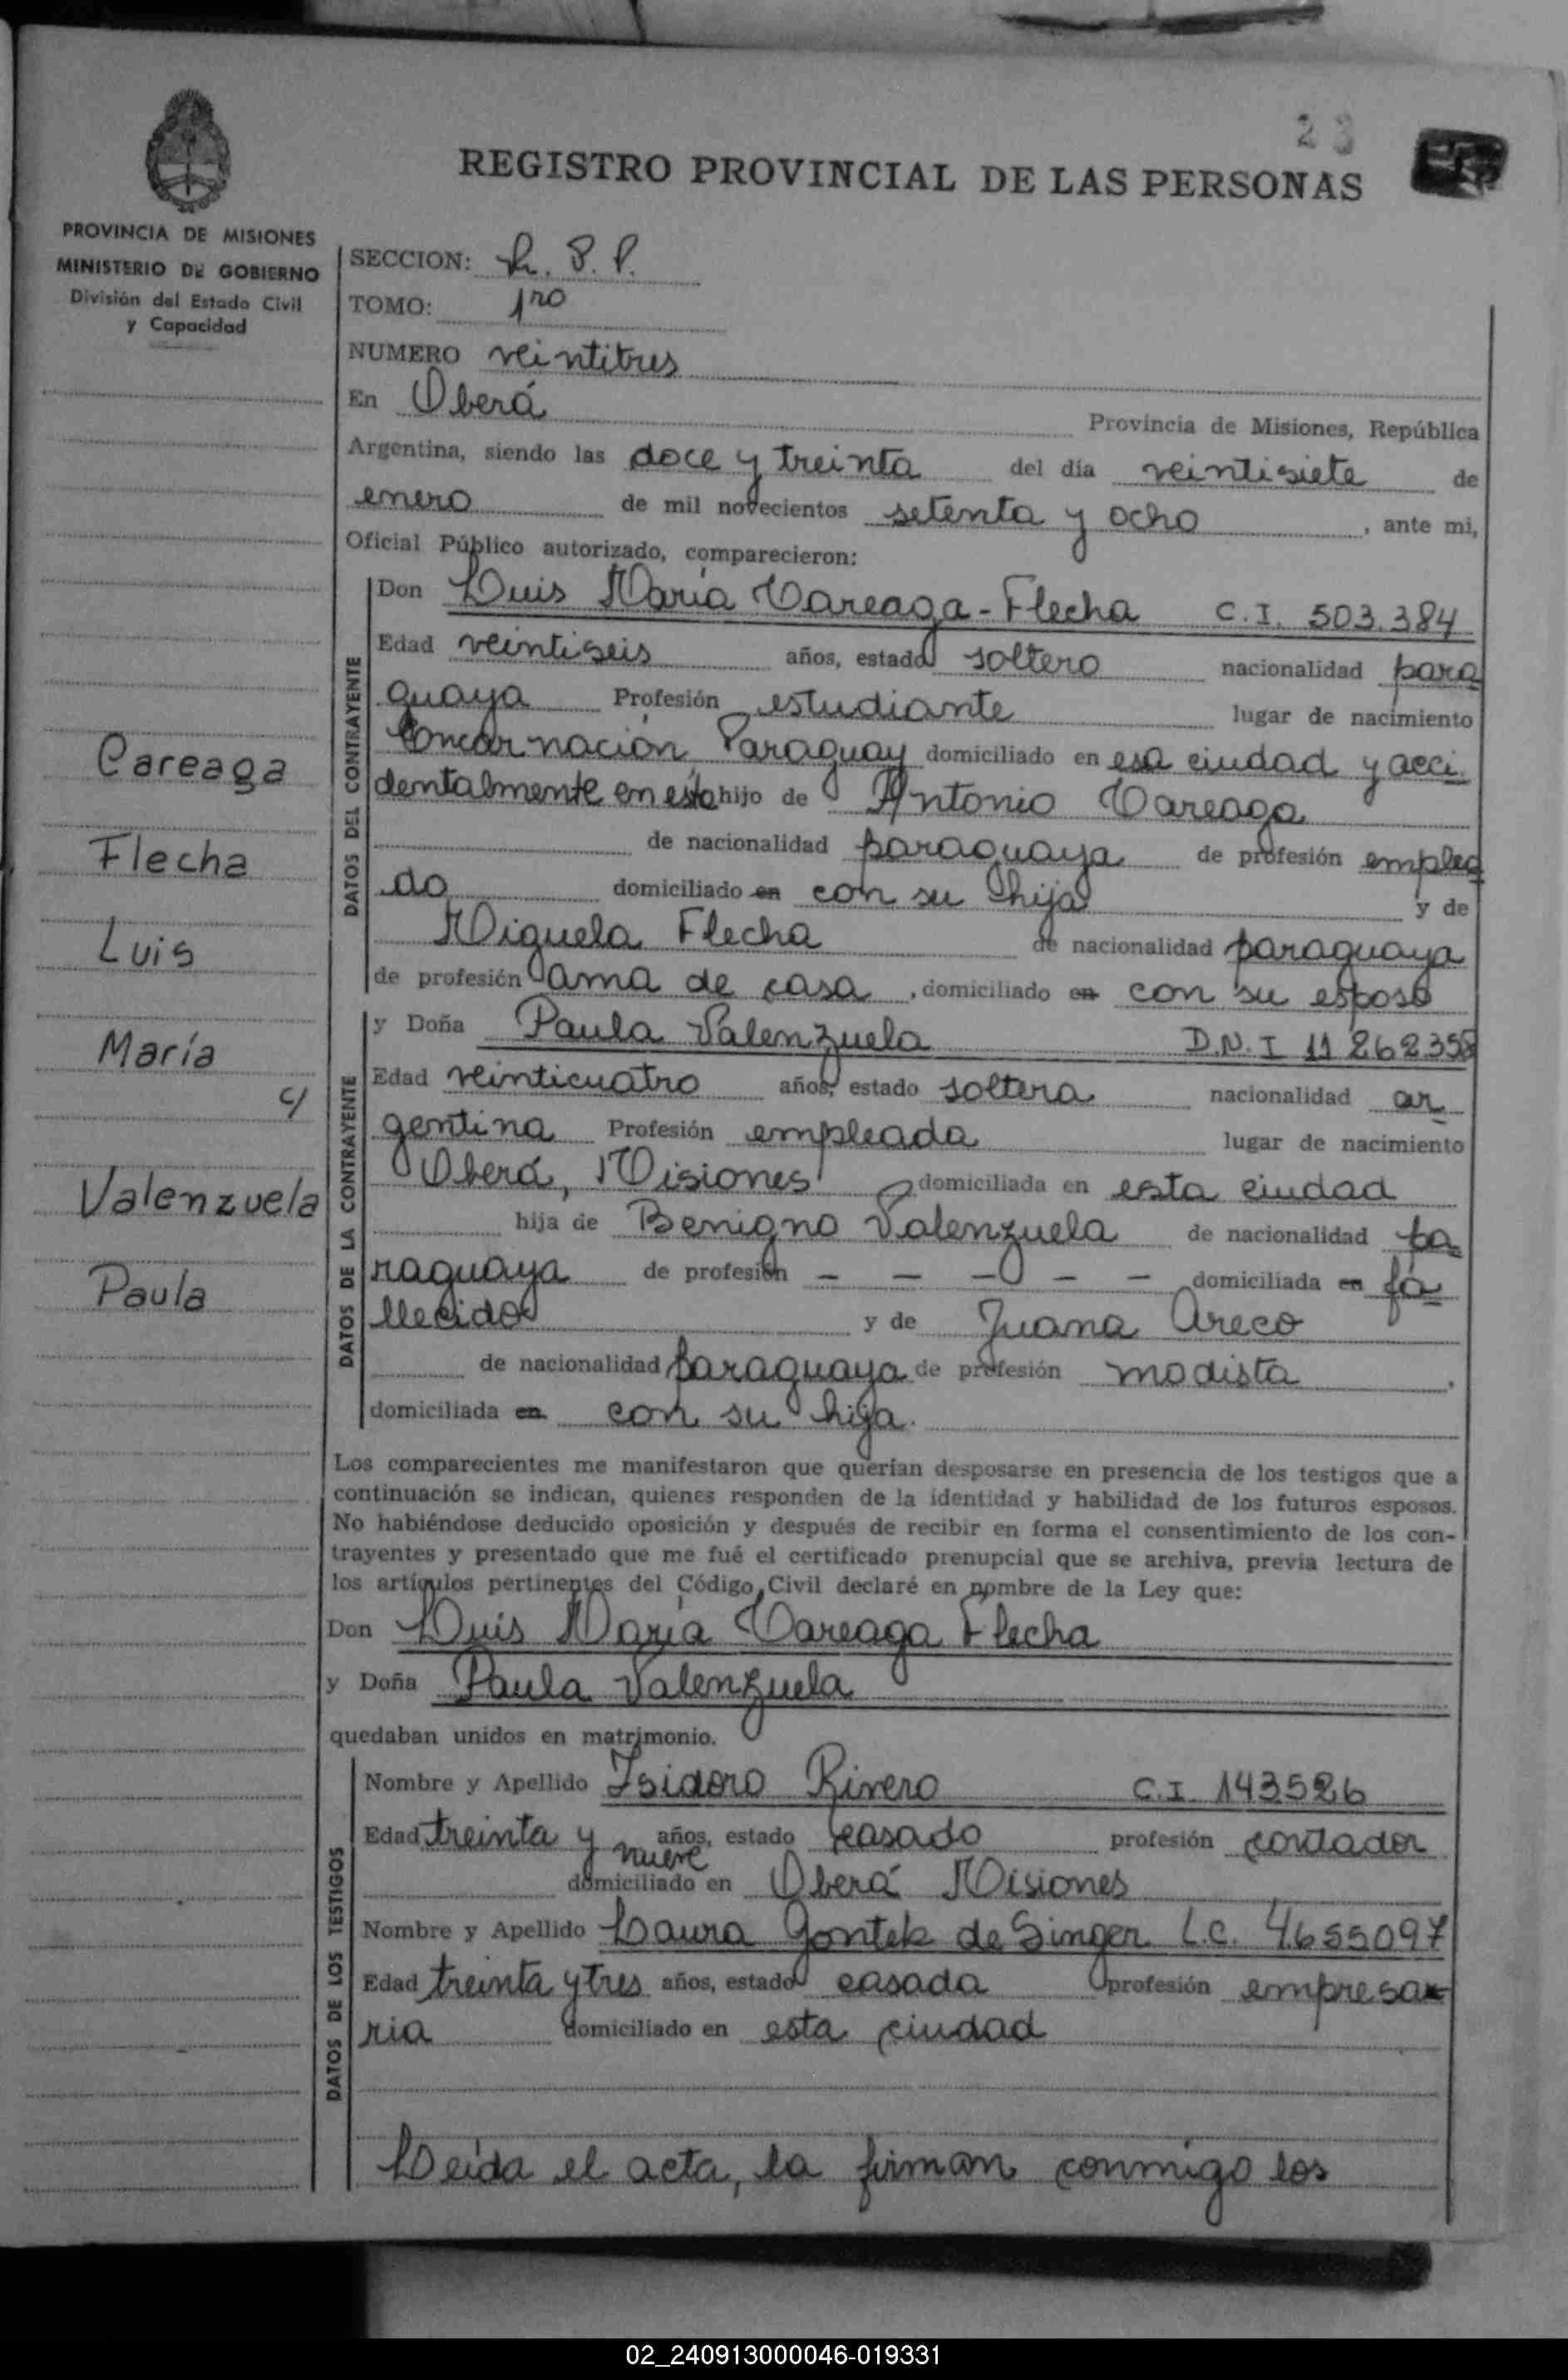 23
REGISTRO PROVINCIAL DE LAS PERSONAS
PROVINCIA DE MISIONES
MINISTERIO DE GOBIERNO
División del Estado Civil
y Capacidad
SECCION: R. P. P.
TOMO: 1ro
NUMERO veintitres
En Oberá Provincia de Misiones, República
Argentina, siendo las doce y treinta del día veintisiete de
enero de mil novecientos setenta y ocho, ante mi,
Oficial Público autorizado, comparecieron:
DATOS DEL CONTRAYENTE
Don Luis María Careaga-Flecha C.I. 503.384
Edad veintiseis años, estado soltero nacionalidad para
guaya Profesión estudiante lugar de nacimiento
Encarnación, Paraguay domiciliado en esa ciudad y acci
dentalmente en esta hijo de Antonio Careaga
de nacionalidad paraguaya de profesión emplea
do domiciliado en con su hija y de
Miguela Flecha de nacionalidad paraguaya
de profesión ama de casa, domiciliado en con su esposo
DATOS DE LA CONTRAYENTE
y Doña Paula Valenzuela D.N.I 11 262358
Edad veinticuatro años, estado soltera nacionalidad ar
gentina Profesión empleada lugar de nacimiento
Oberá, Misiones domiciliada en esta ciudad
hija de Benigno Valenzuela de nacionalidad pa=
raguaya de profesión - - - - - domiciliada en fa=
llecido y de Juana Areco
de nacionalidad paraguaya de profesión modista,
domiciliada en con su hija.
Careaga
Flecha
Luis
María
c/
Valenzuela
Paula
Los comparecientes me manifestaron que querían desposarse en presencia de los testigos que a
continuación se indican, quienes responden de la identidad y habilidad de los futuros esposos.
No habiéndose deducido oposición y después de recibir en forma el consentimiento de los con-
trayentes y presentado que me fué el certificado prenupcial que se archiva, previa lectura de
los artículos pertinentes del Código Civil declaré en nombre de la Ley que:
Don Luis María Careaga Flecha
y Doña Paula Valenzuela
quedaban unidos en matrimonio.
DATOS DE LOS TESTIGOS
Nombre y Apellido Isidoro Rivero C.I. 143526
Edad treinta y nueve años, estado casado profesión contador
domiciliado en Oberá Misiones
Nombre y Apellido Laura Gontek de Singer L.C. 4655097
Edad treinta y tres años, estado casada profesión empresa
ria domiciliado en esta ciudad
Leída el acta, la firman conmigo los
02_240913000046-019331